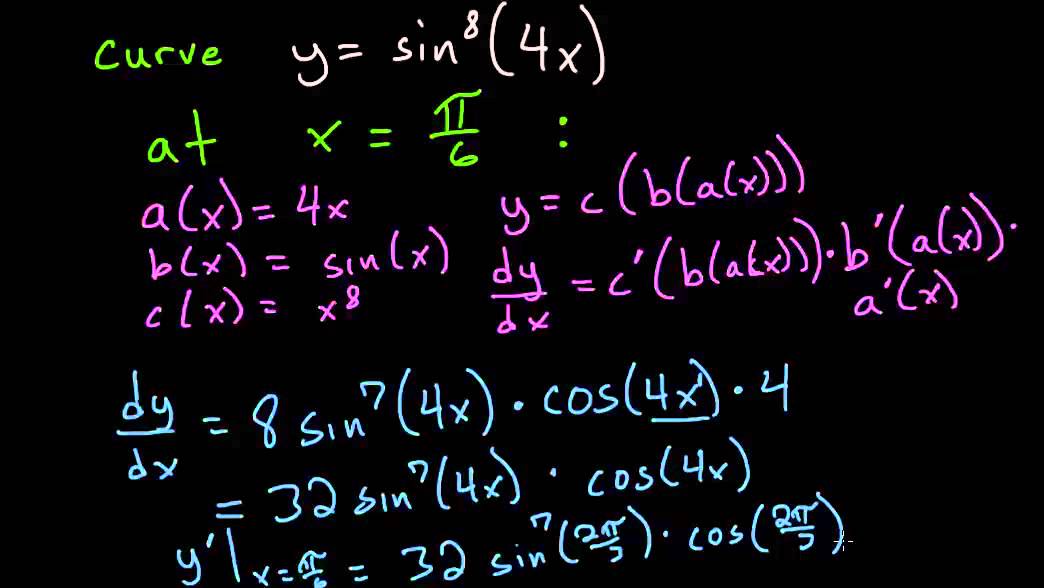 curve y = sin⁸(4x)
at x = π/6 :
a(x) = 4x
b(x) = sin(x)
c(x) = x⁸
y = c(b(a(x)))
dy/dx = c'(b(a(x))) · b'(a(x)) ·
a'(x)
dy/dx = 8 sin⁷(4x) · cos(4x) · 4
= 32 sin⁷(4x) · cos(4x)
y'|x=π/6 = 32 sin⁷(2π/3) · cos(2π/3)